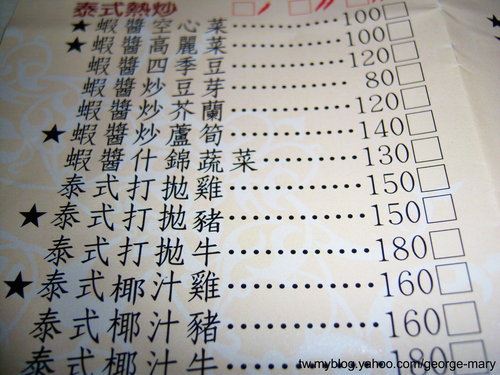 泰式熱炒
★ 蝦醬空心菜 100
★ 蝦醬高麗菜 100
蝦醬四季豆 120
蝦醬炒豆芽 80
蝦醬炒芥蘭 120
★ 蝦醬炒蘆筍 140
蝦醬什錦蔬菜 130
泰式打拋雞 150
★ 泰式打拋豬 150
泰式打拋牛 180
★ 泰式椰汁雞 160
泰式椰汁豬 160
泰式椰汁牛 180
tw.myblog.yahoo.com/george-mary